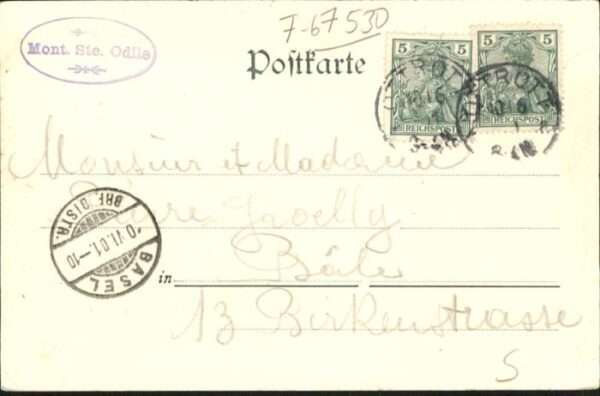 7-67530
Mont. Ste. Odile
Postkarte
5
REICHSPOST
5
REICHSPOST
OTTROTT
OTTROTT
Monsieur et Madame
Bâle
in
13 Birkenstrasse
BASEL
BRF. DISTR.
S